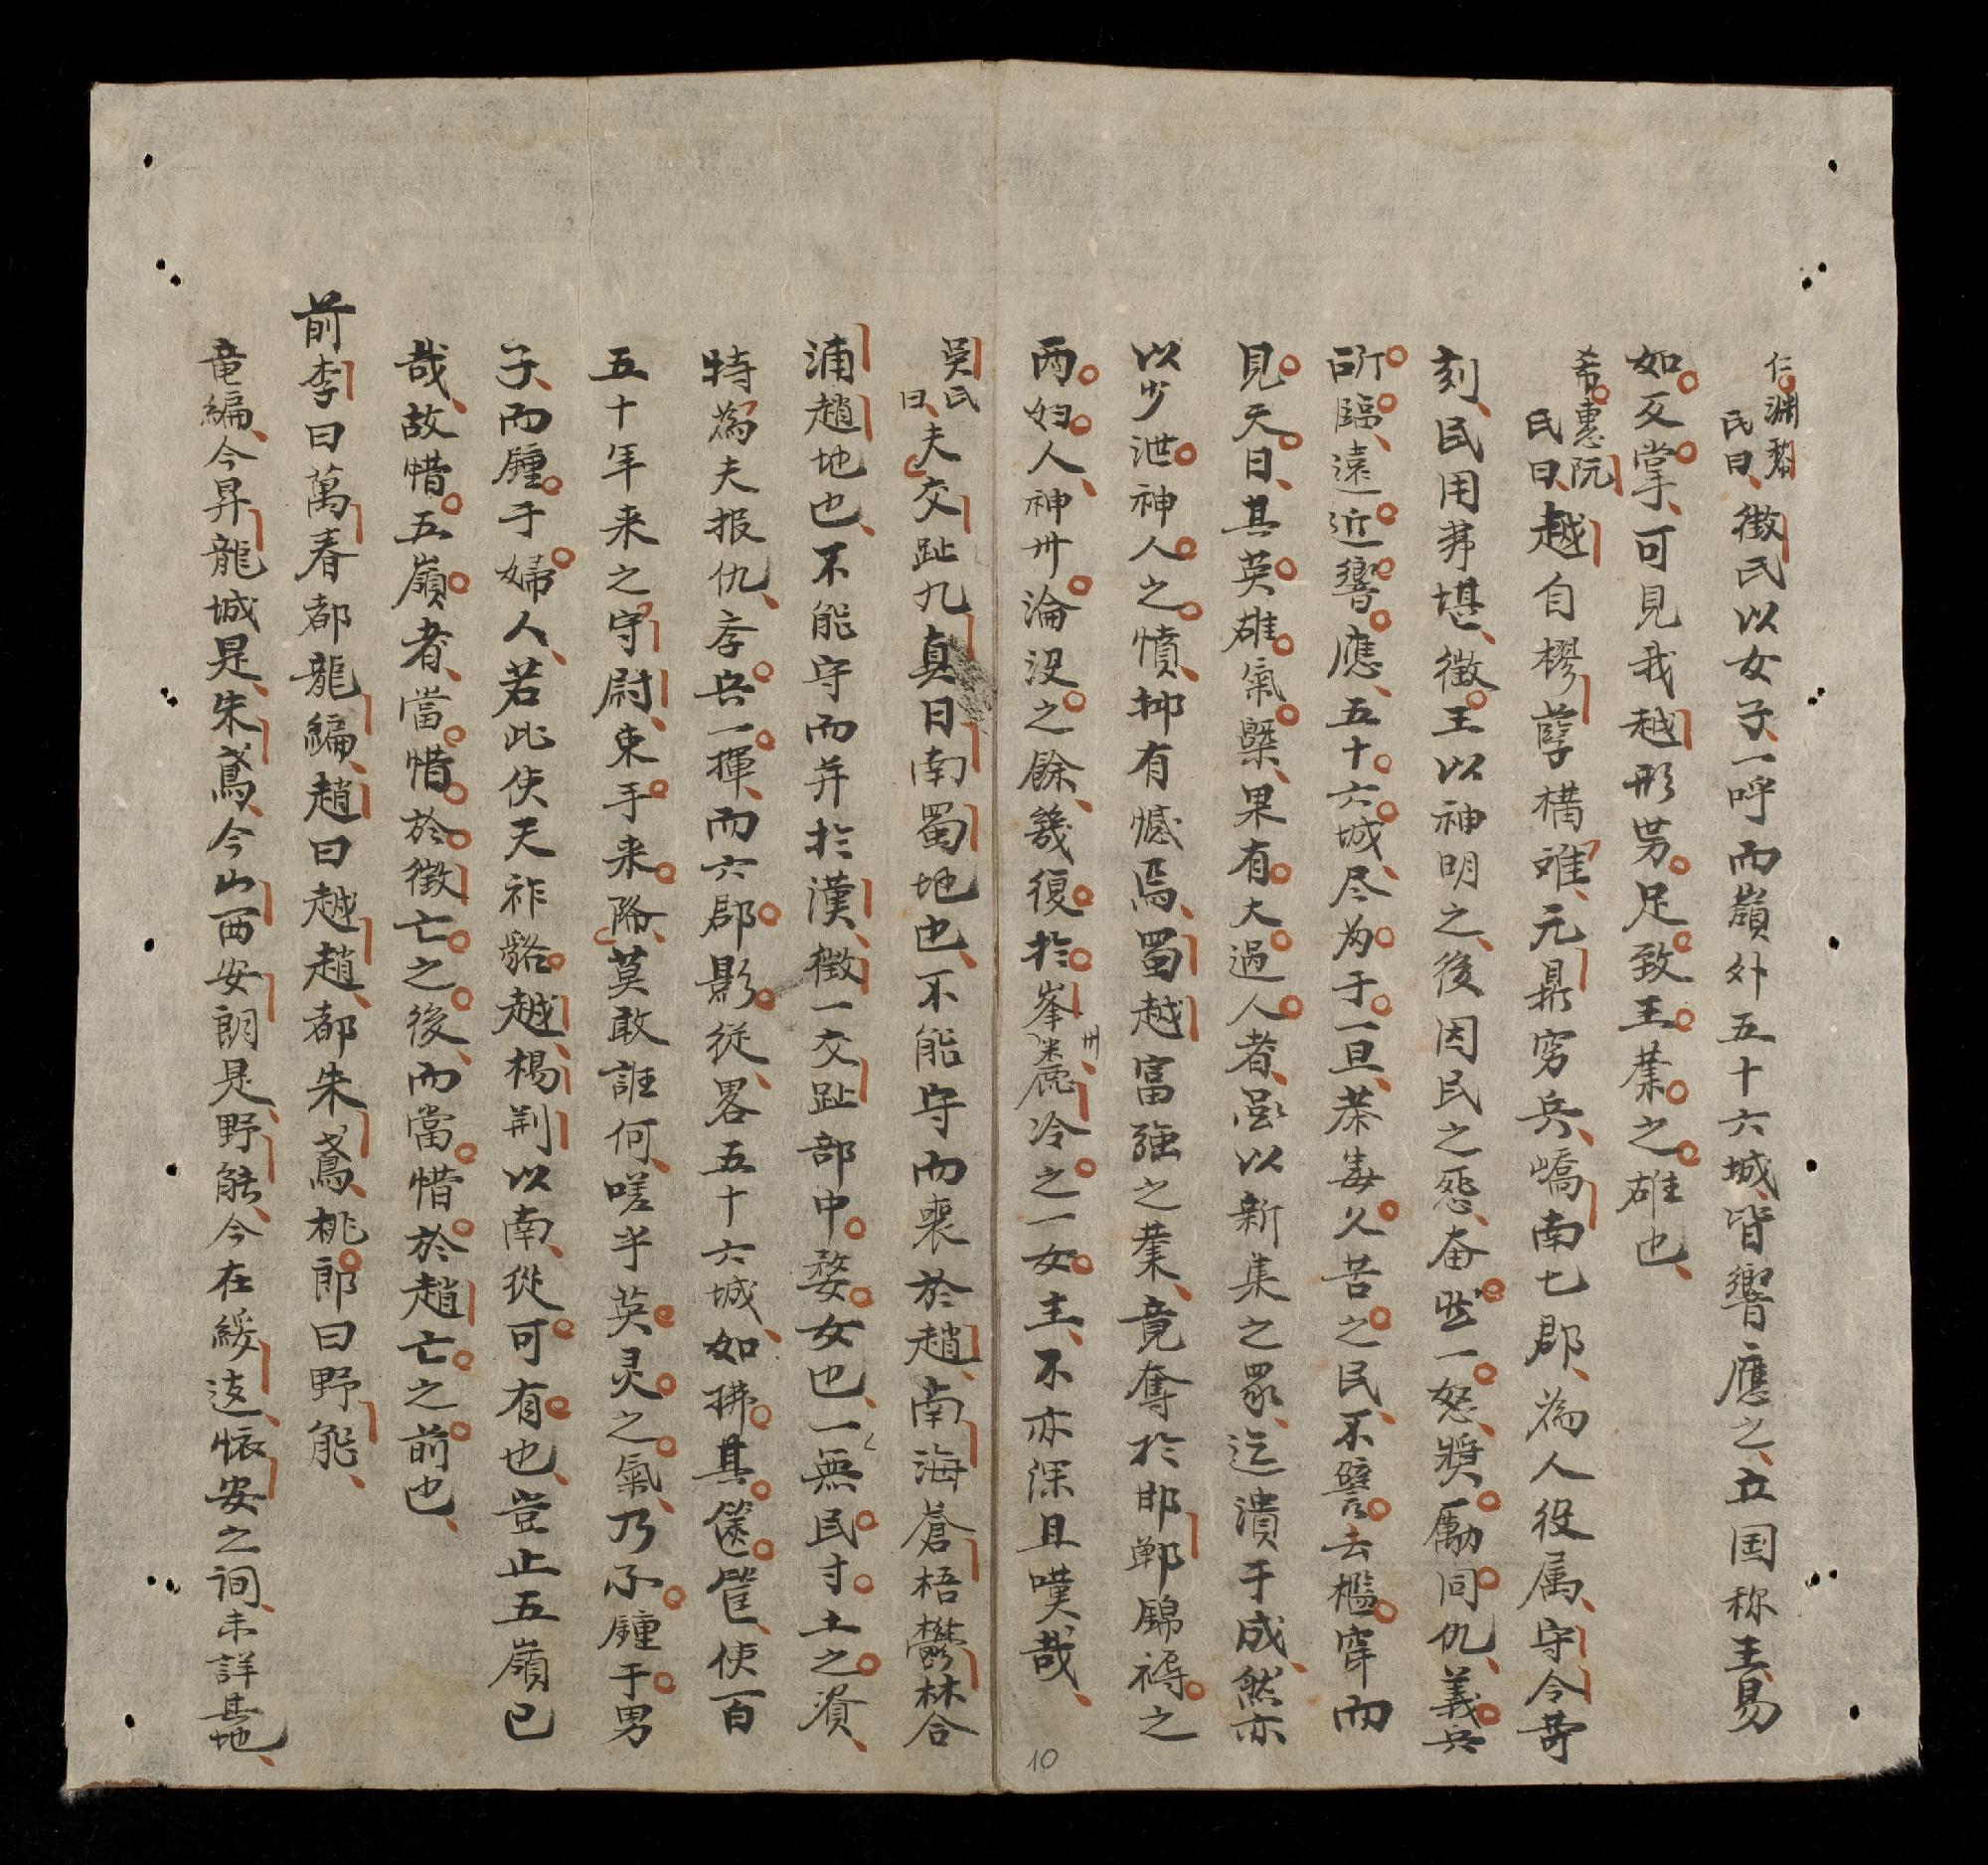 仁渊黎氏曰徵氏以女子一呼而嶺外五十六城皆響應之立国称王易
如反掌可見我越形势足致王業之雄也
希惠阮氏曰越自樛孽構难元鼎穷兵嶠南七郡為人役属守令苛
刻民用弗堪徵王以神明之後因民之怨奋然一怒奬勵同仇義兵
所臨遠近響應五十六城尽为于一旦荼毒久苦之民不啻去檻穽而
見天日其英雄氣槩果有大過人者虽以新集之眾迄潰于成然亦
以少泄神人之憤抑有憾焉蜀越富強之業竟奪於邯鄲錦褥之
两妇人神卅淪没之餘幾復於峯州麊冷之一女主不亦深且嘆哉
吳氏曰夫交趾九真日南蜀地也不能守而喪於趙南海蒼梧鬱林合
浦趙地也不能守而并於漢徵一交趾部中婺女也一無民寸土之資
特為夫报仇孝兵一揮而六郡影從畧五十六城如拂其篋筐使百
五十年来之守尉束手来降莫敢誰何嗟乎英灵之氣乃不鍾于男
子而鍾于婦人若此使天祚貉越楊荆以南從可有也豈止五嶺已
哉故惜五嶺者當惜於徵亡之後而當惜於趙亡之前也
前李曰萬春都龍編趙曰越趙都朱鳶桃郎曰野能
竜編今昇龍城是朱鳶今山西安朗是野能今在綏远懷安之间未詳其地
10